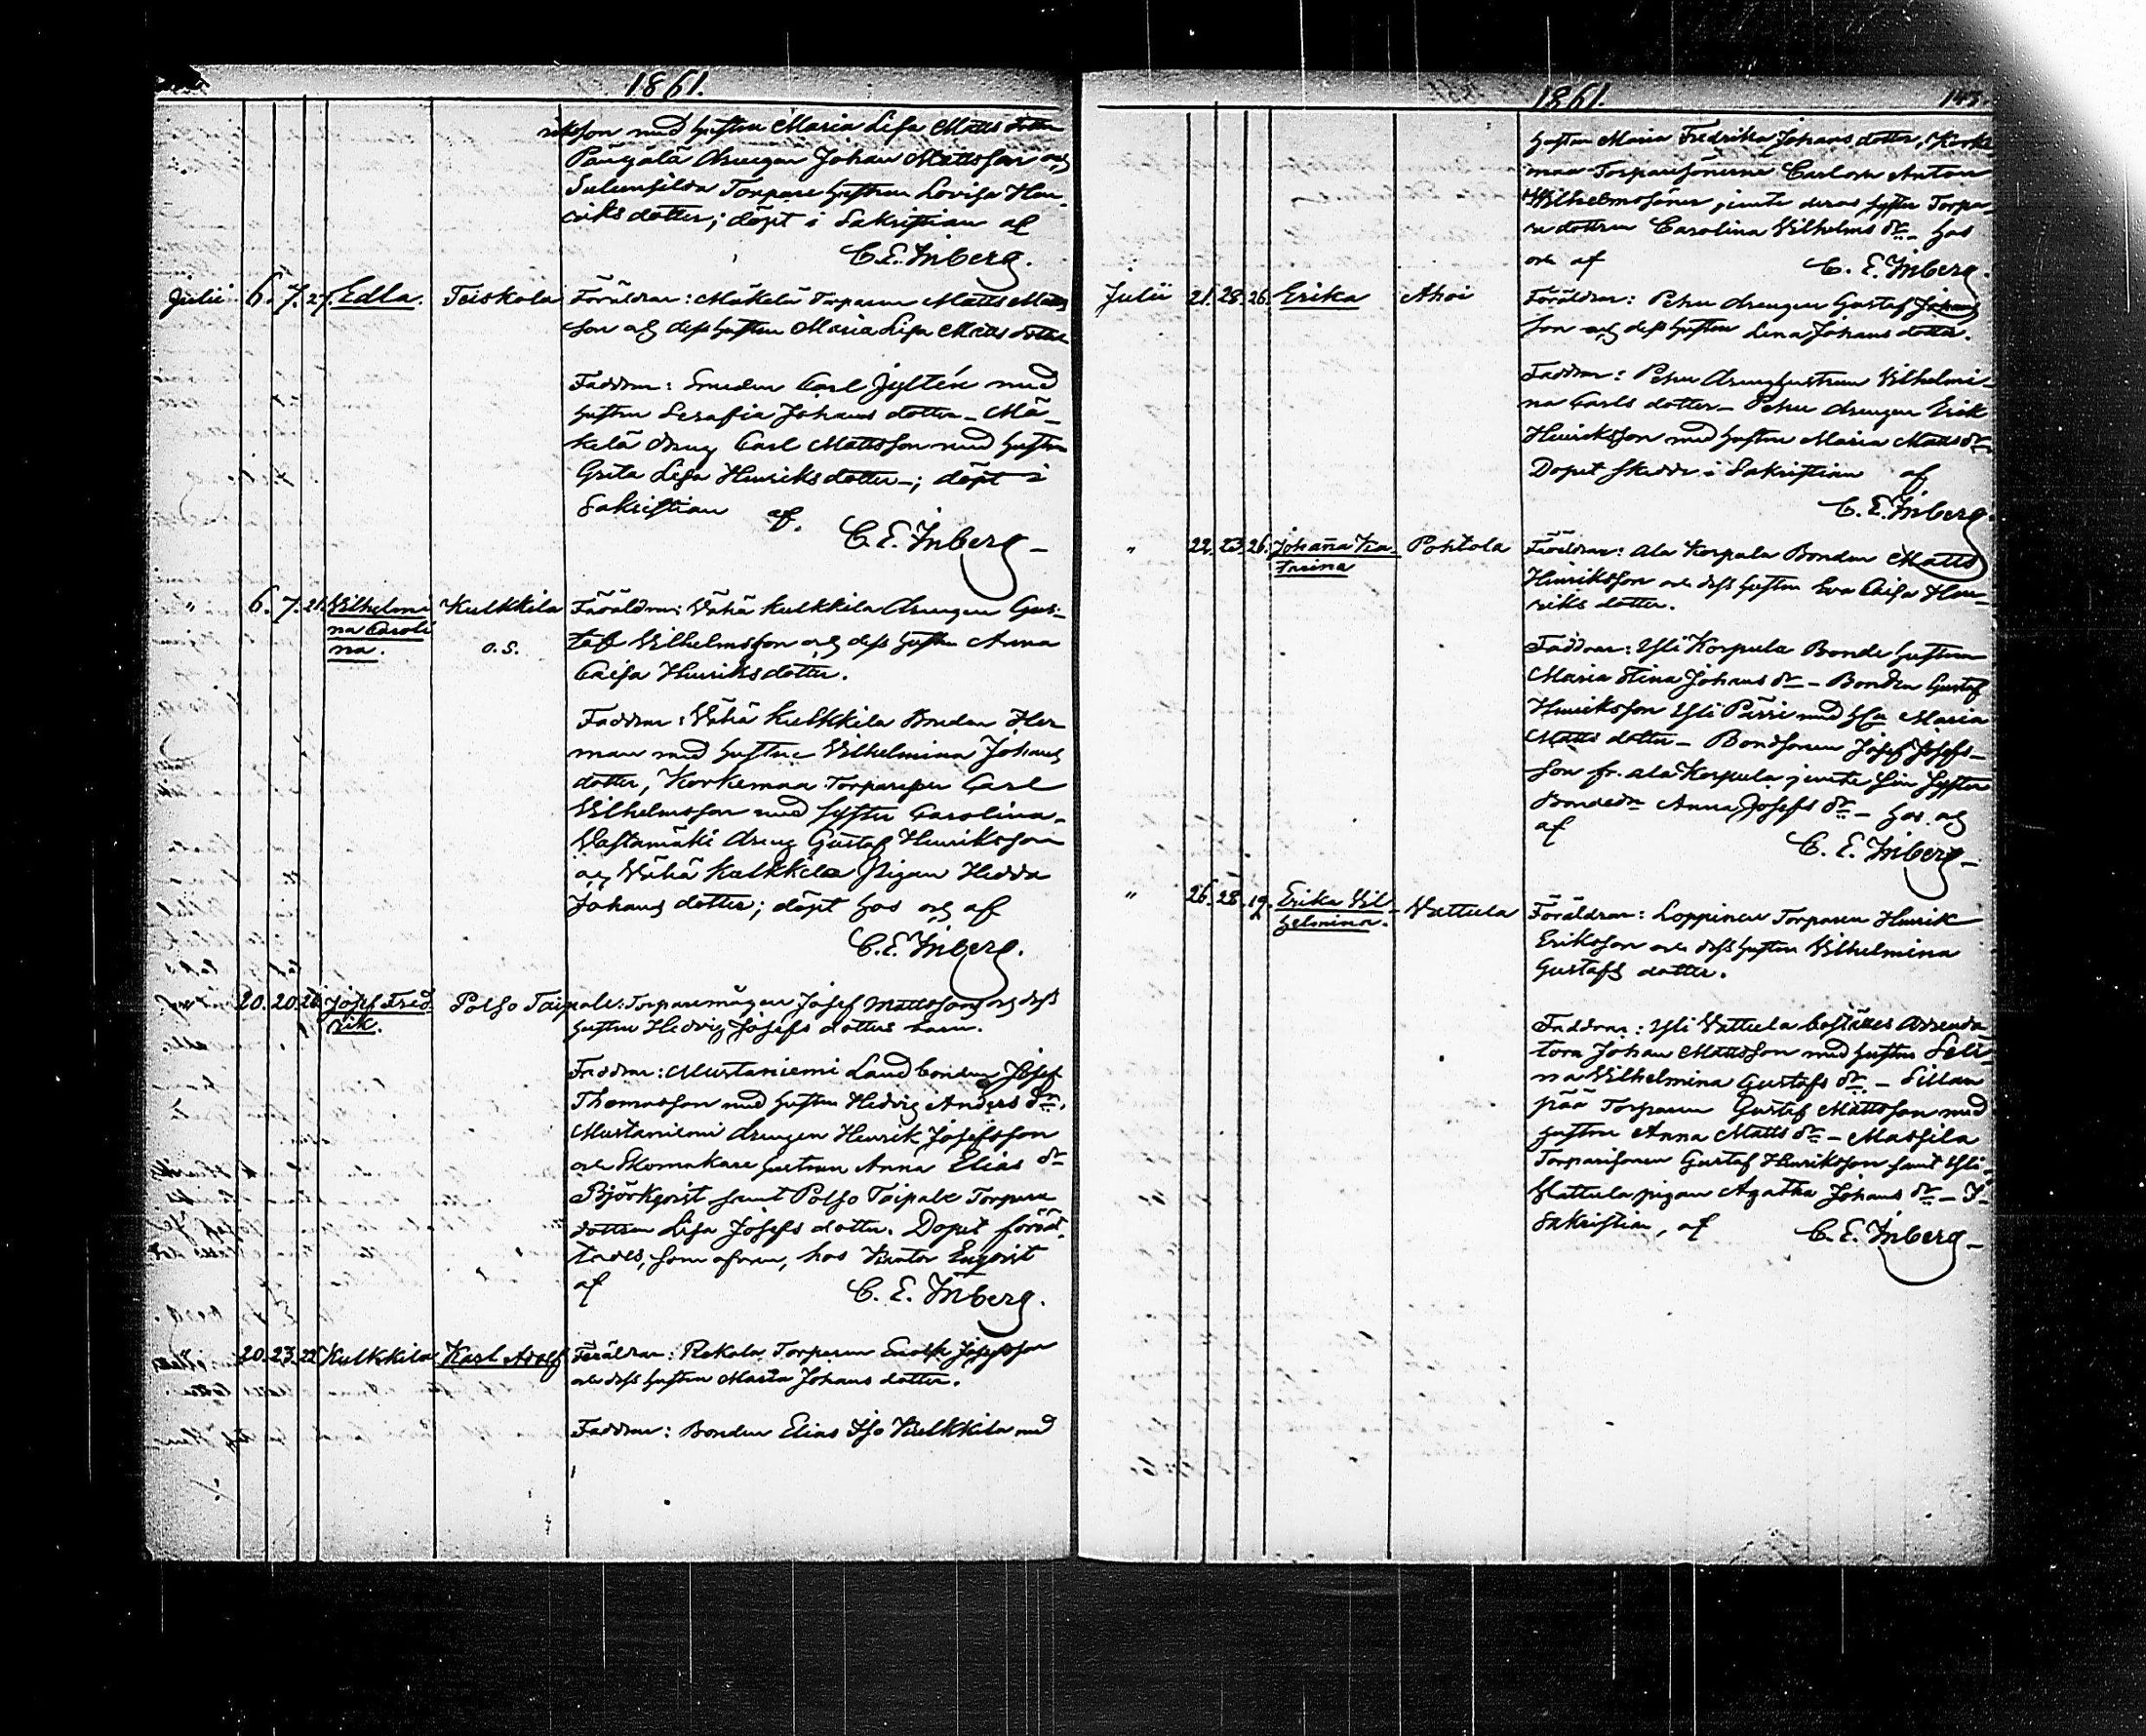 1861.
riksson med hustru Maria Lisa Matts dotter
Pärgälä drengen Johan Mattsson och
Torpare hustrun Lovisa Hen-
riks dotter; döpt i Sakristian af
C. E. Inberg.
Julii 6. 7. 27. Edla. Teiskola Föräldrar: Mäkelä Torparen Matts Matts
son och dess hustru Maria Lisa Matts dotter
Faddrar: Smeden Carl Jyltén med
hustru Serafia Johans dotter - Mä-
kelä dreng Carl Mattsson med hustru
Greta Lisa Henriks dotter -; döpt i
Sakristian af.
C. E. Inberg -
" 6. 7. 21. Vilhelmi Kulkkila Föräldrar: Vähä Kulkkila drengen Gus-
na Caroli o. S. taf Vilhelmsson och dess hustru Anna
na. Caisa Henriks dotter.
Faddrar: Vähä Kulkkila Bonden Her
man med hustru Vilhelmina Johans
dotter, Korkemaa Torpareson Carl
Vilhelmsson med syster Carolina -
Vastamäki dreng Gustaf Henriksson
och Vähä Kulkkila Pigan Hedda
Johans dotter; döpt hos och af
C. E. Inberg.
20. 20. Josef Fred Polso Taipale: Torparemågen Josef Mattsson och dess
rik. hustru Hedvig Josefs dotters barn.
Faddrar: Mustaniemi Landbonden Josef
Thomasson med hustru Hedvig Anders dr.
Mustaniemi drengen Henrik Josefsson
och Skomakare hustrun Anna Elias dr
Björkqvist samt Polso Taipale Torpare
dottren Lisa Josefs dotter. Dopet förrät-
tades, som ofvan, hos Kantor Enqvist
af C. E. Inberg.
20. 23. 22 Kulkkila Karl Adolf Föräldrar: Rekola Torparen Enok Josefsson
och dess hustru Maria Johans dotter.
Faddrar: Bonden Elias Iso Kulkkila med
1861. 143.
hustru Maria Fredrika Johans dotter, Korke-
maa Torparesönerne Carl och Anton
Wilhelmssöner jemte deras syster Torpa-
re dottren Carolina Vilhelms dr - hos
och af C. E. Inberg.
Julii 21. 28. 26. Erika Ahoi Föräldrar: Pehu drengen Gustaf Johans
son och dess hustru Lena Johans dotter.
Faddrar: Pehu drenghustrun Vilhelmi-
na Carls dotter - Pehu drengen Erik
Henriksson med hustru Maria Matts dr
Dopet skedde i Sakristian af
C. E. Inberg.
" 22. 23. 26. Johanna Ka- Pohtola Föräldrar: Ala Korpula Bonden Matts
trina Henriksson och dess hustru Eva Caisa Hen-
riks dotter.
Faddrar: Yli Korpula Bonde hustrun
Maria Stina Johans dr - Bonden Gustaf
Henriksson Yli Pärri med Hu Maria
Matts dotter - Bondsonen Josef Josefs-
son fr. Ala Korpula jemte sin syster
Bondedn Anna Josefs dr - hos och
af C. E. Inberg -
" 26. 28. 19. Erika Vil- Vattula Föräldrar: Loppinen Torparen Henrik
helmina. Eriksson och dess hustru Vilhelmina
Gustafs dotter.
Faddrar: Yli Vattula boställes Arrenda
torn Johan Mattsson med hustru Seli-
na Vilhelmina Gustafs dr - Sillan
pää Torparen Gustaf Mattsson med
hustru Anna Matts dr - Massila
Torparesonen Gustaf Henriksson samt Yli-
Vattula pigan Agatha Johans dr - I
Sakristian, af C. E. Inberg -